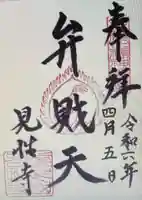 奉拝
令和六年
四月五日
弁財天
見性寺